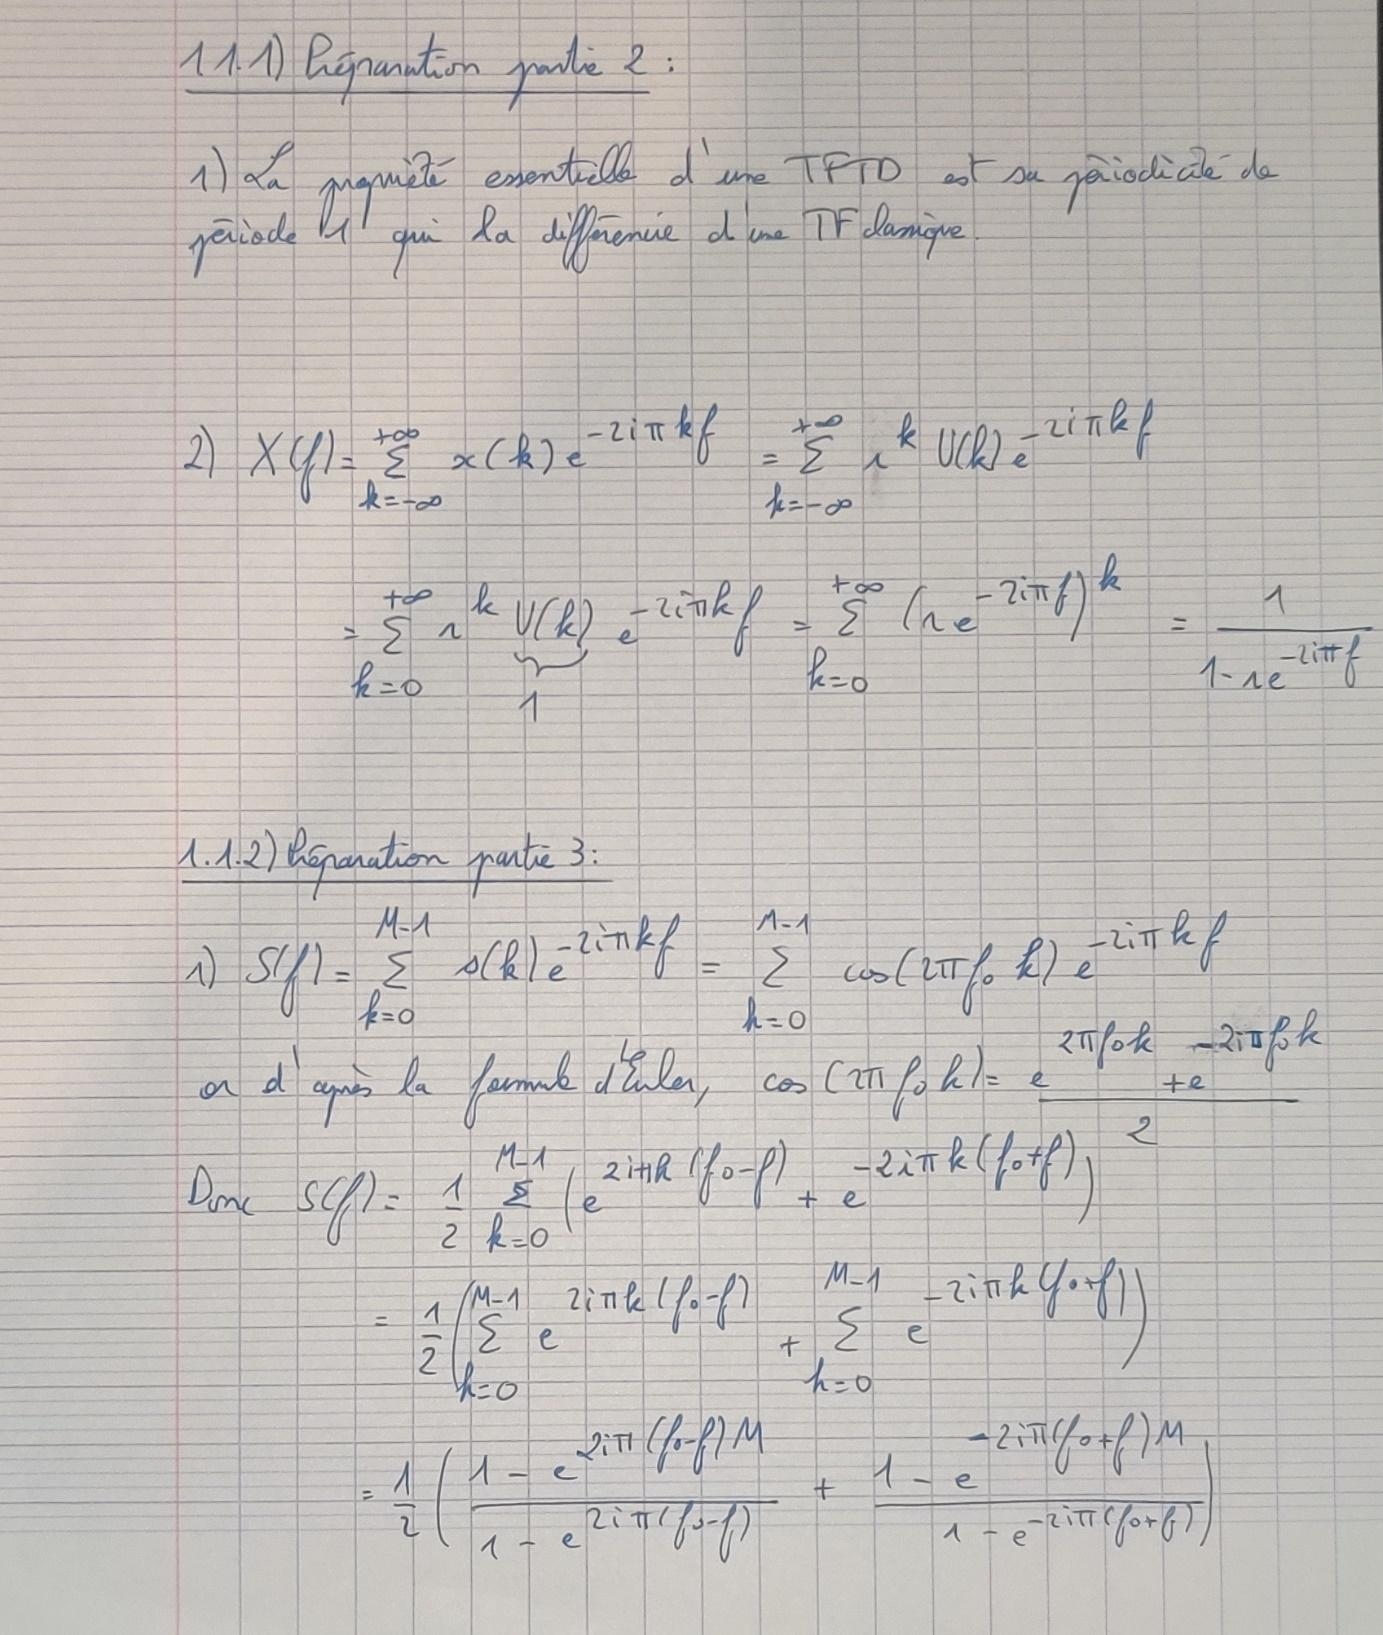 1.1.1) Préparation partie 2 :
1) La propriété essentielle d'une TFTD est sa périodicité de
période 1 qui la différencie d'une TF classique.
2) X(f) = Σ_{k=-∞}^{+∞} x(k) e^{-2iπkf} = Σ_{k=-∞}^{+∞} r^k U(k) e^{-2iπkf}
= Σ_{k=0}^{+∞} r^k U(k) e^{-2iπkf} = Σ_{k=0}^{+∞} (r e^{-2iπf})^k = 1 / (1 - r e^{-2iπf})
1
1.1.2) Préparation partie 3 :
1) S(f) = Σ_{k=0}^{M-1} s(k) e^{-2iπkf} = Σ_{k=0}^{M-1} cos(2πf₀k) e^{-2iπkf}
or d'après la formule d'Euler, cos(2πf₀k) = (e^{2πf₀k} + e^{-2iπf₀k}) / 2
Donc S(f) = 1/2 Σ_{k=0}^{M-1} (e^{2iπk(f₀-f)} + e^{-2iπk(f₀+f)})
= 1/2 (Σ_{k=0}^{M-1} e^{2iπk(f₀-f)} + Σ_{k=0}^{M-1} e^{-2iπk(f₀+f)})
= 1/2 ((1 - e^{2iπ(f₀-f)M}) / (1 - e^{2iπ(f₀-f)}) + (1 - e^{-2iπ(f₀+f)M}) / (1 - e^{-2iπ(f₀+f)}))